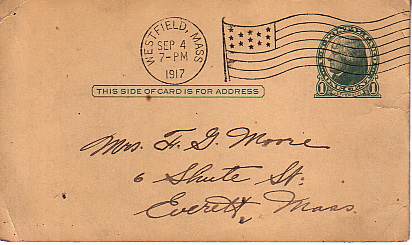 WESTFIELD, MASS.
SEP 4
7-PM
1917
THIS SIDE OF CARD IS FOR ADDRESS
1 1
Mrs. F. G. Moore
6 Shute St.
Everett, Mass.